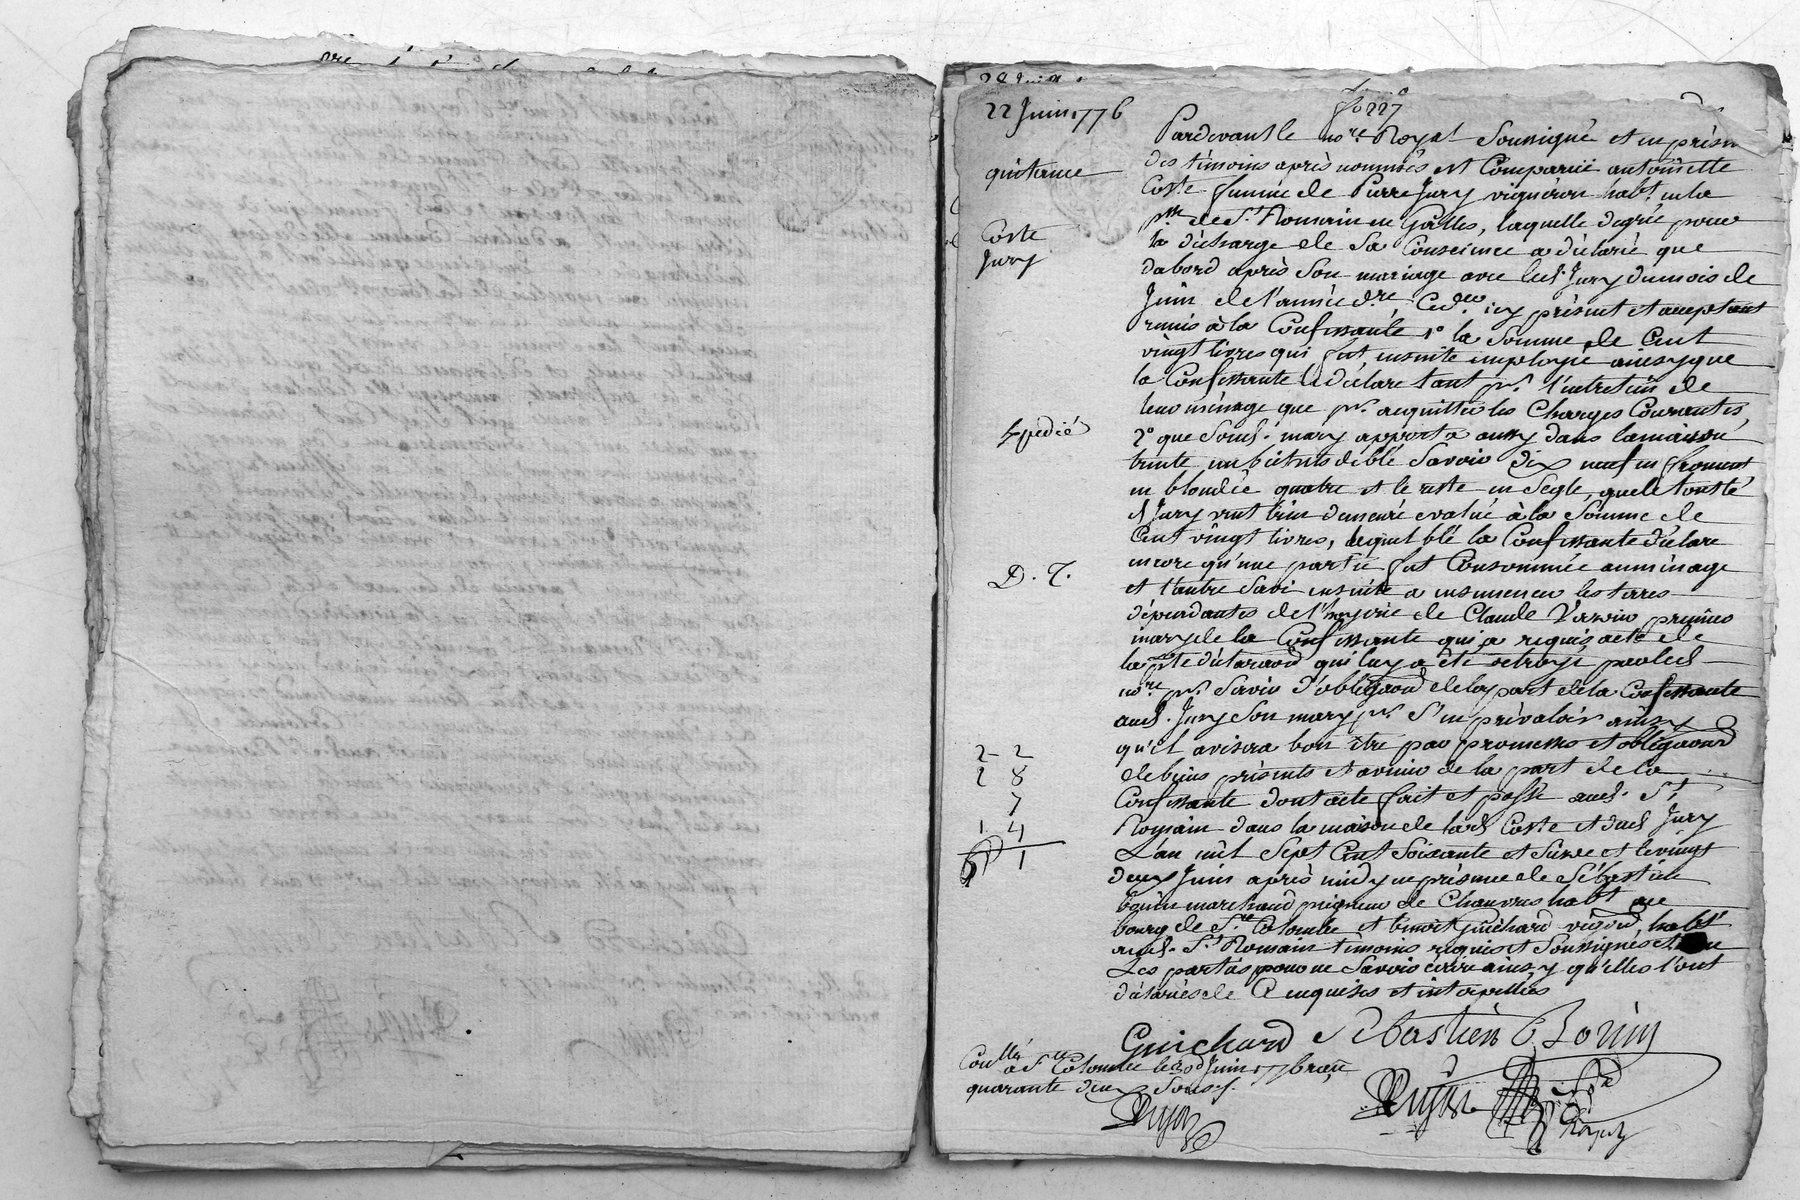 22 Juin 1776
fo 227
quittance
Coste
Jury
Expedié
D. T.
2 2
2 8
7
1 4
6 1
Pardevant le no.re Royal Soussigné et en présen
des témoins après nommés est Comparüe antoinette
Coste femme de Pierre Jury vigneron hab.t en la
p.sse de S.t Romain en Galles, laquelle degré pour
la décharge de Sa Conscience a déclaré que
dabord après Son mariage avec led. Jury du mois de
Juin de l'année d.re Ced.er icy présent et acceptant
remis à la Confessante 1° la Somme de Cent
vingt livres qui fut ensuite employée ainsy que
la Confessante le déclare tant p.r l'entretien de
leur ménage que p.r acquitter les Charges Courantes
2° que Sond. mary apporta aussy dans la maison
trente un bichets de blé Savoir dix neuf en froment
en blondée quatre et le reste en Segle, que le tout
d Jury evalué à la Somme de
Cent vingt livres, lequel blé la Confessante déclare
encore qu'une partie fut Consommée au ménage
et l'autre Savi ensuite a ensemencer les terres
dépendantes de l'hoyrie de Claude premier
mary de la Confessante qui a requis acte de
la p.nte déclaraon qui luy a été octroyé par led
no.re p.r Servir d'obligaon de la part de la Confessante
aud. Jury Son mary p.r S'en prévaloir ainsy
qu'il avisera bon être par promesses et obligaons
de biens présents et avenir de la part de la
Confessante dont acte fait et passé aud. S.t
Romain dans la maison de lad Coste et dud Jury
L'an mil Sept Cent Soixante et Seize et le vingt
deux Juin après midy en présence de Sébastien
bonin marchand peigneur de Chanvres hab.t au
bourg de S.te Colombe et benoit Guichard vigero.n hab.t
aud. S.t Romain témoins requis et Soussignés et non
Les parties pour ne Savoir écrire ainsy qu'elles l'ont
déclarés de Ce enquises et interpellées
Guichard Sébastien Bonin
Con.llé à S.te Colombe le 30 Juin 1776 reçu
quarante deux Sous